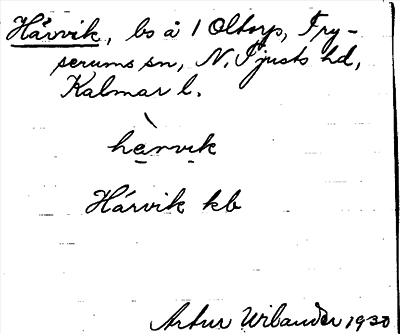 Hårvik, bs å 1 Oltorp, Fry-
serums sn, N. Tjusts hd,
Kalmar l.
hàrvik
Hårvik kb
Artur Wibander 1930